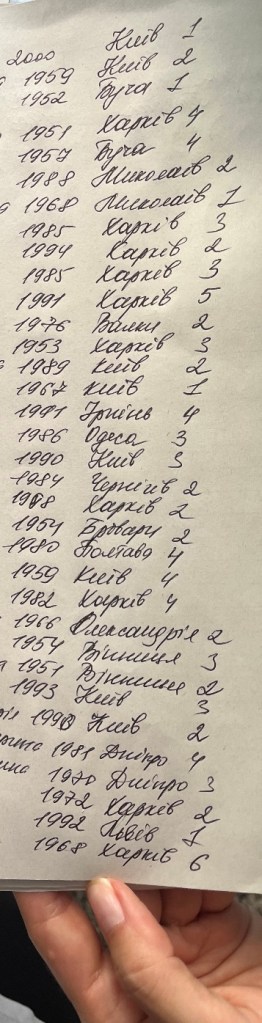 2000 Київ 1
1959 Київ 2
1952 Буча 1
1951 Харків 4
1957 Буча 4
1988 Миколаїв 2
1968 Миколаїв 1
1985 Харків 3
1994 Харків 2
1985 Харків 3
1991 Харків 5
1976 Валки 2
1953 Харків 3
1989 Київ 2
1967 Київ 1
1991 Ірпінь 4
1986 Одеса 3
1990 Київ 3
1984 Чернігів 2
Харків 2
1954 Бровари 2
1980 Полтава 4
1959 Київ 4
1982 Харків 4
1966 Олександрія 2
1954 Вінниця 3
1951 Вінниця 2
1993 Київ 3
Київ 2
1981 Дніпро 4
1970 Дніпро 3
1972 Харків 2
1992 Львів 1
1968 Харків 6